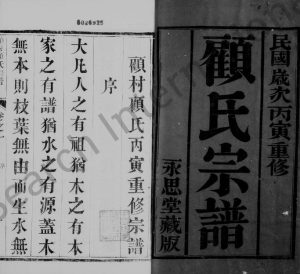 民國歲次丙寅重修
顧氏宗譜
永思堂藏版
顧村顧氏丙寅重修宗譜
序
大凡人之有祖猶木之有本
家之有譜猶水之有源蓋木
無本則枝葉無由而生水無